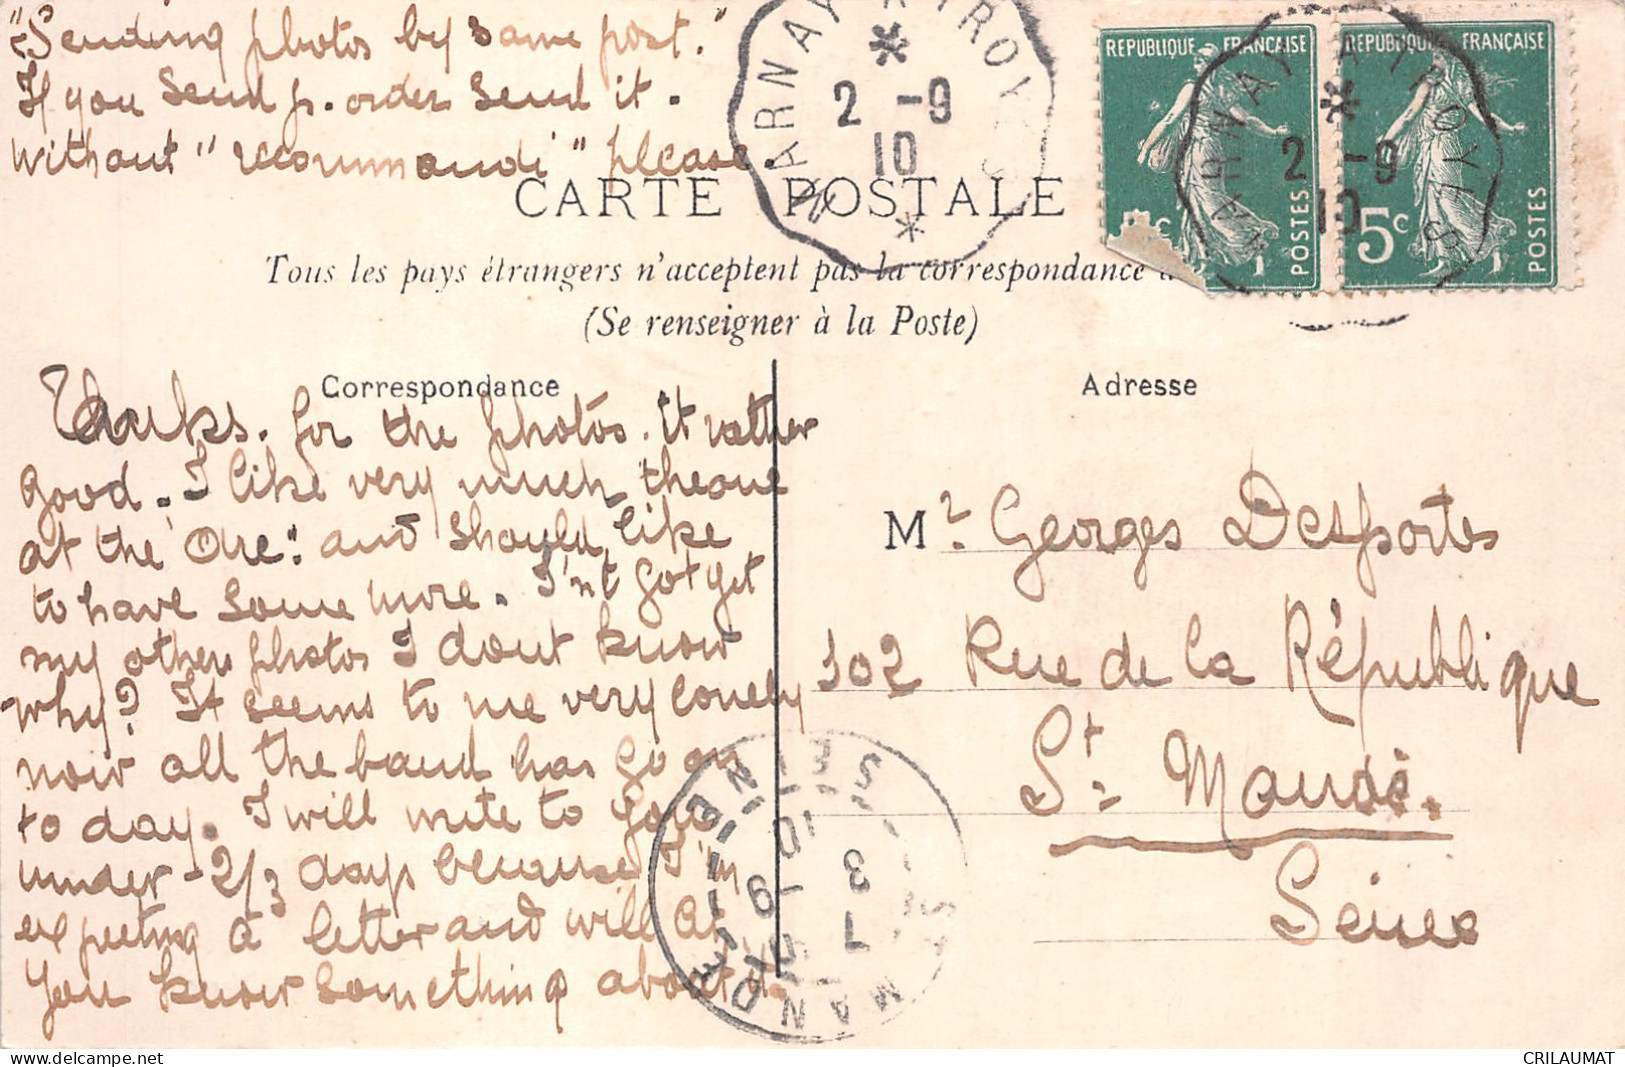 "Sending photos by same post."
If you send p. order send it.
without "recommandi" please.
MARNAY A TROYES
2 -9
10
REPUBLIQUE FRANÇAISE
POSTES
REPUBLIQUE FRANÇAISE
5c
POSTES
MARNAY A TROYES
2 -9
10
CARTE POSTALE
Tous les pays étrangers n'acceptent pas la correspondance
(Se renseigner à la Poste)
Correspondance
Adresse
Thanks. for the photos. it rather
good. I like very much the one
at the "Ore": and should like
to have some more. I'nt got yet
my other photos I dont know
why? It seems to me very lonely
now all the band has go on
to day. I will write to you
under -2/3 days because I'm
expecting a letter and will let
you know something about it.
Mr. Georges Desportes
102 Rue de la République
St. Mandé.
Seine
ST MANDÉ SEINE
7
3 -9
10
CRILAUMAT